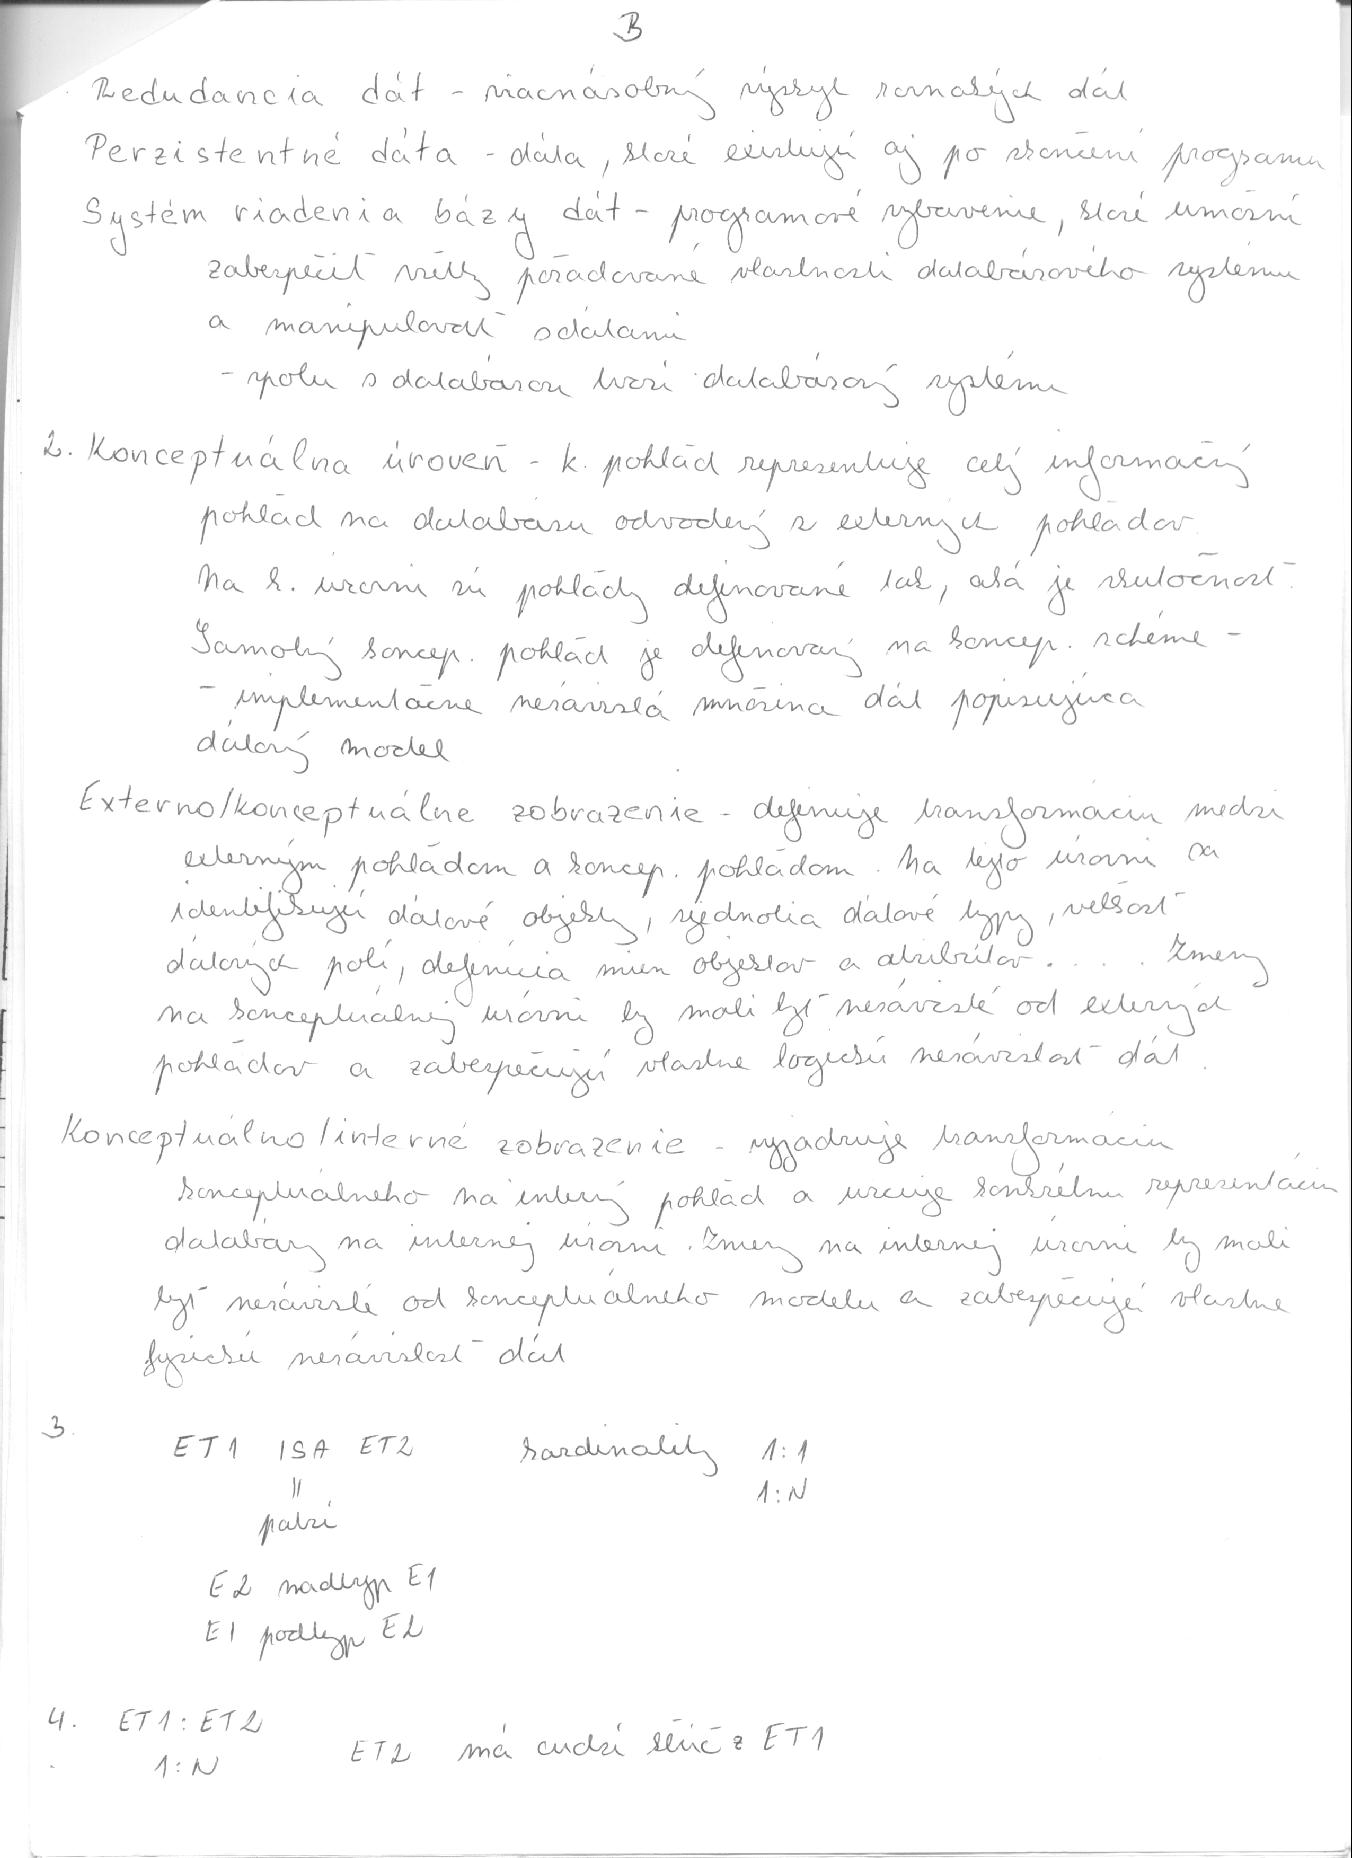 B
Redudancia dát - viacnásobný výskyt rovnakých dát
Perzistentné dáta - dáta, ktoré existujú aj po skončení programu
Systém riadenia bázy dát - programové vybavenie, ktoré umožní
zabezpečiť všetky požadované vlastnosti databázového systému
a manipulovať s dátami
- spolu s databázou tvorí databázový systém
2. Konceptuálna úroveň - k. pohľad reprezentuje celý informačný
pohľad na databázu odvodený z externých pohľadov.
Na k. úrovni sú pohľady definované tak, aká je skutočnosť.
Samotný koncep. pohľad je definovaný na koncep. schéme -
- implementačne nezávislá množina dát popisujúca
dátový model
Externo/konceptuálne zobrazenie - definuje transformáciu medzi
externým pohľadom a koncep. pohľadom. Na tejto úrovni sa
identifikujú dátové objekty, zjednotia dátové typy, veľkosť
dátových polí, definícia mien objektov a atribútov . . . . Zmeny
na konceptuálnej úrovni by mali byť nezávislé od externých
pohľadov a zabezpečujú vlastne logickú nezávislosť dát.
Konceptuálno/interné zobrazenie - vyjadruje transformáciu
konceptuálneho na interný pohľad a určuje konkrétnu reprezentáciu
databázy na internej úrovni. Zmeny na internej úrovni by mali
byť nezávislé od konceptuálneho modelu a zabezpečujú vlastne
fyzickú nezávislosť dát
3. ET1 ISA ET2 kardinality 1:1
" 1:N
patrí
E2 nadtyp E1
E1 podtyp E2
4. ET1 : ET2
1:N ET2 má cudzí kľúč z ET1